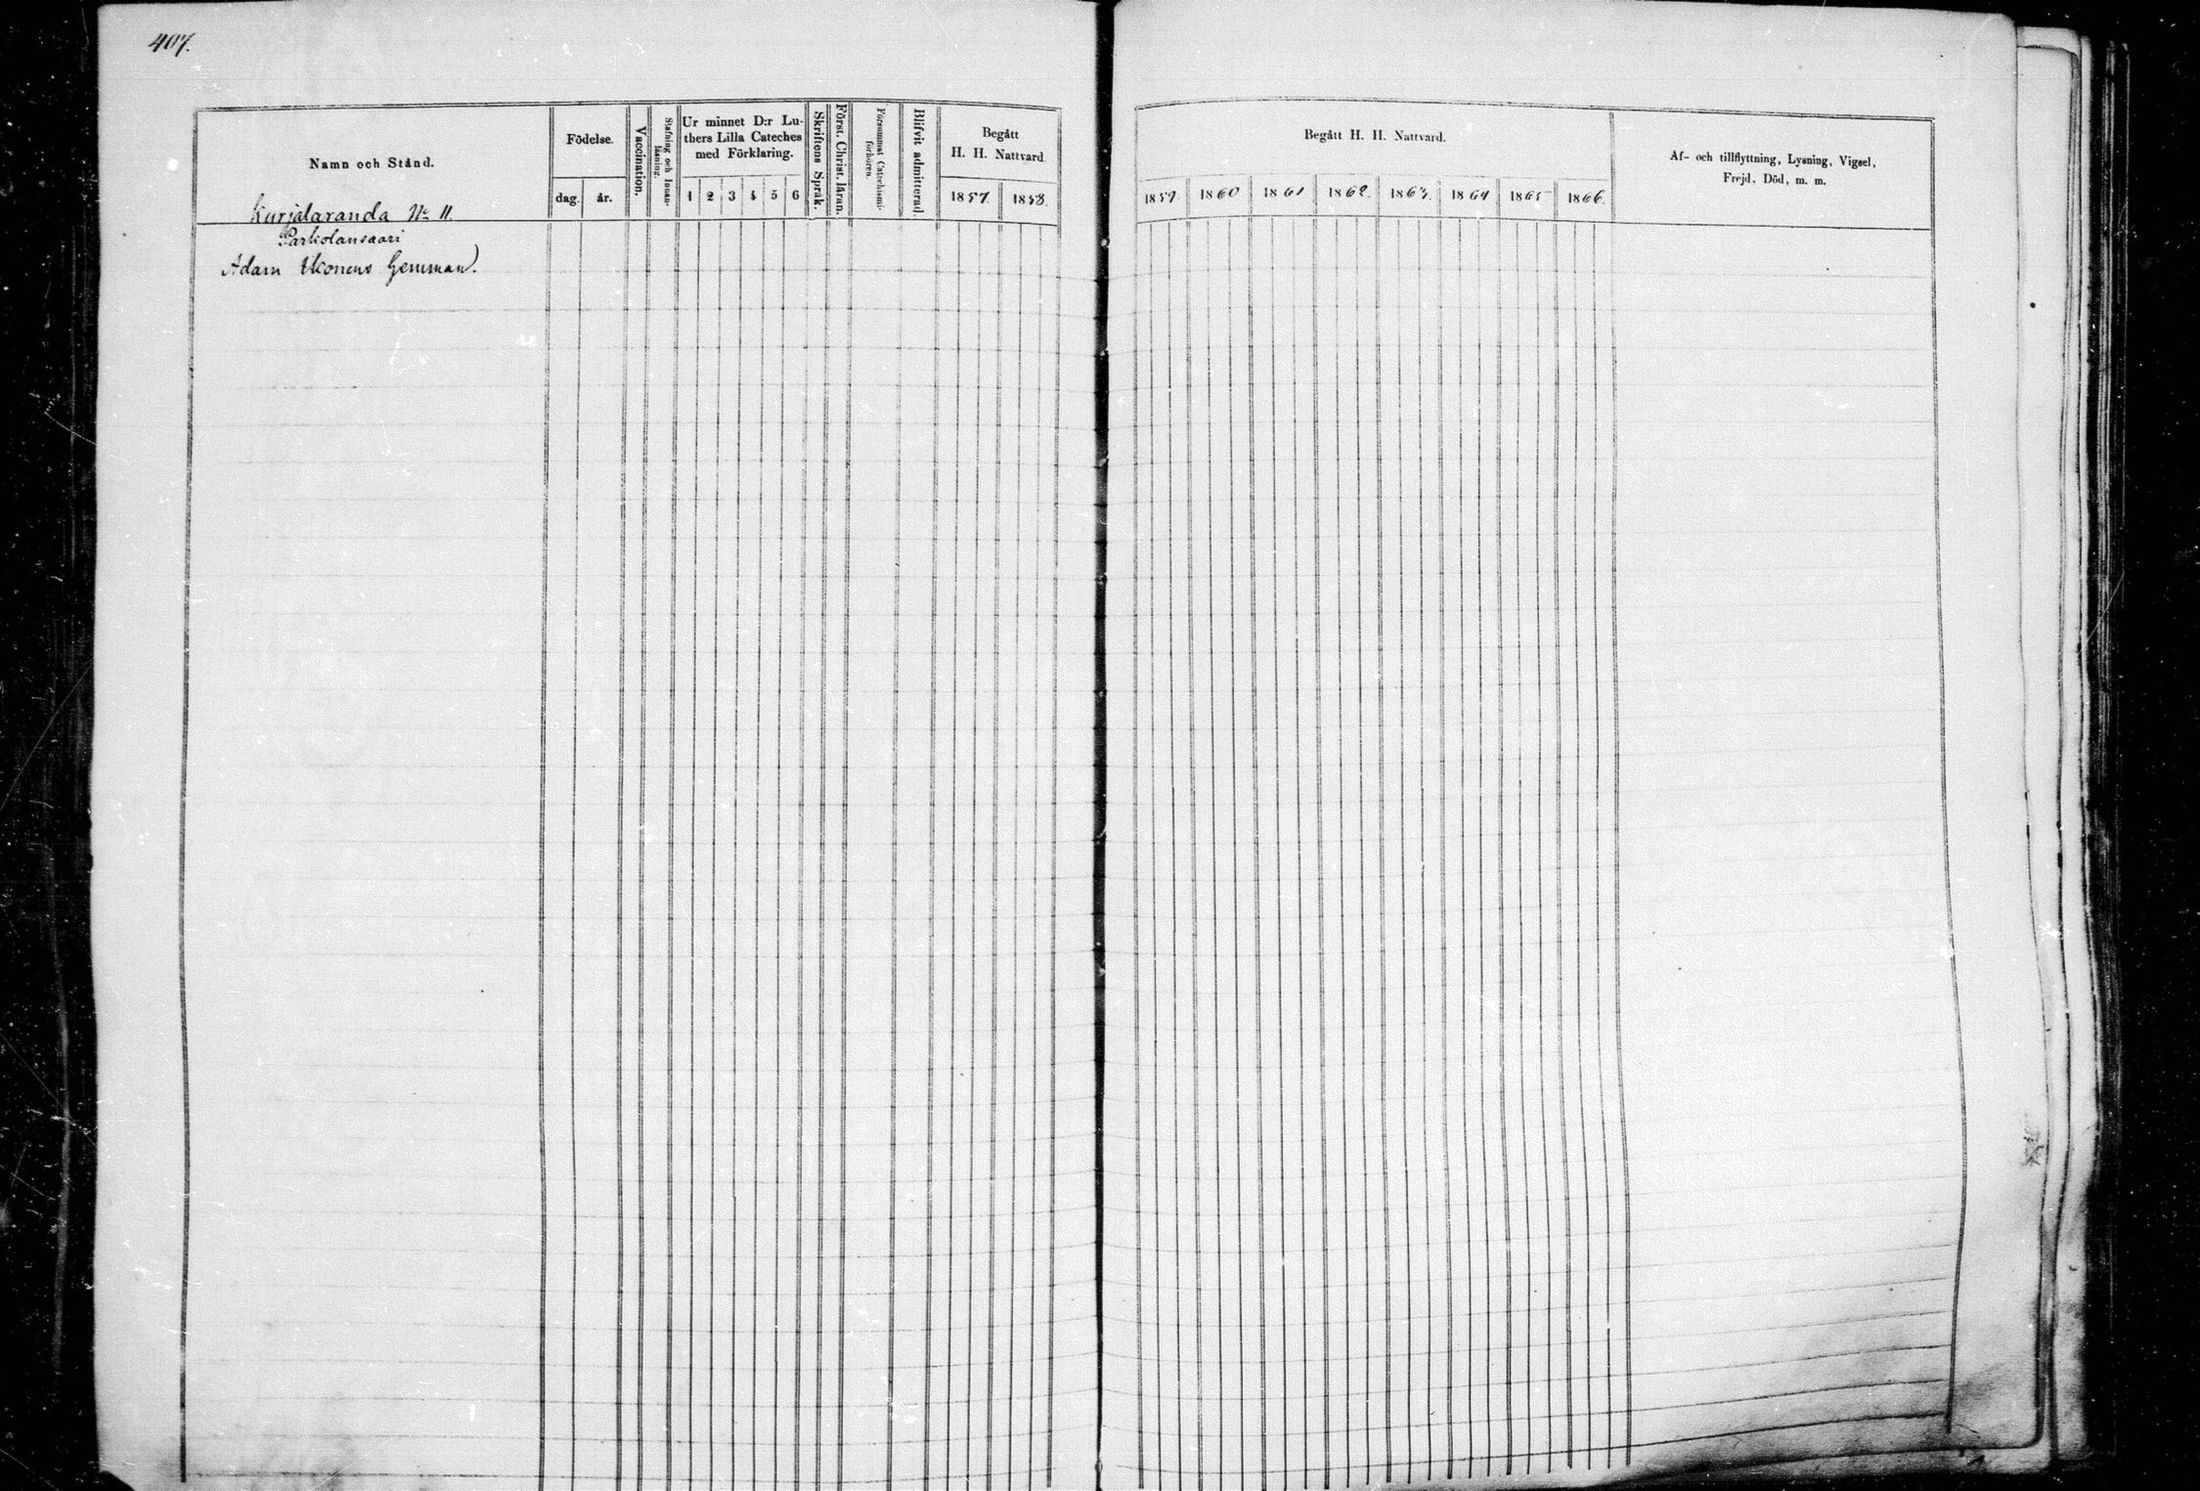 407.
Namn och Stånd.
Kurjalaranda No 11.
Födelse.
dag.
år.
Vaccination.
Stafning och Innan-
läsning.
Ur minnet D:r Lu-
thers Lilla Cateches
med Förklaring.
1 2 3 4 5 6
Skriftens Språk.
Först. Christ. läran.
Försummat Catechismi-
förhören.
Blifvit admitterad.
Begått
H. H. Nattvard.
1857. 1858.
Parkolansaari
Adam Ikonens Hemman.
Begått H. H. Nattvard.
1859. 1860 1861 1862. 1863. 1864 1865 1866.
Af- och tillflyttning, Lysning, Vigsel,
Frejd, Död, m. m.